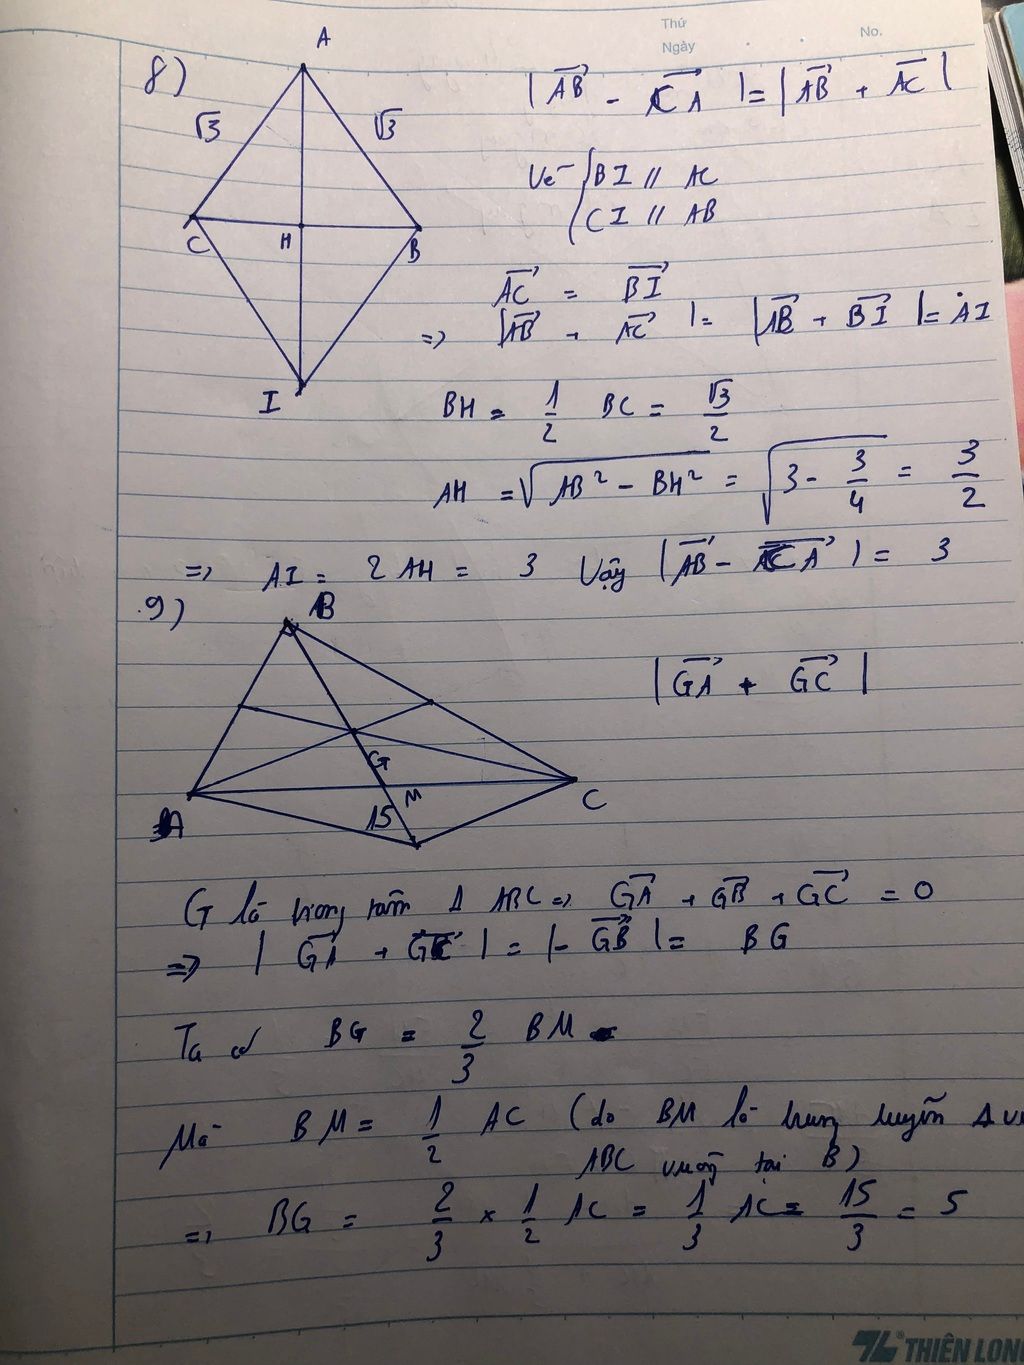 Thứ
Ngày
No.
8)
A
√3
√3
C
H
B
I
|AB⃗ - CA⃗| = |AB⃗ + AC⃗|
Vẽ { BI // AC
CI // AB
AC⃗ = BI⃗
=> |AB⃗ + AC⃗| = |AB⃗ + BI⃗| = AI
BH = 1/2 BC = √3/2
AH = √(AB² - BH²) = √(3 - 3/4) = 3/2
=> AI = 2AH = 3 Vậy |AB⃗ - CA⃗| = 3
9)
B
G
M
15
A
C
|GA⃗ + GC⃗|
G là trọng tâm Δ ABC => GA⃗ + GB⃗ + GC⃗ = 0
=> |GA⃗ + GC⃗| = |-GB⃗| = BG
Ta có BG = 2/3 BM
Mà BM = 1/2 AC (do BM là trung tuyến Δ
ABC vuông tại B)
=> BG = 2/3 × 1/2 AC = 1/3 AC = 15/3 = 5
TL® THIÊN LONG